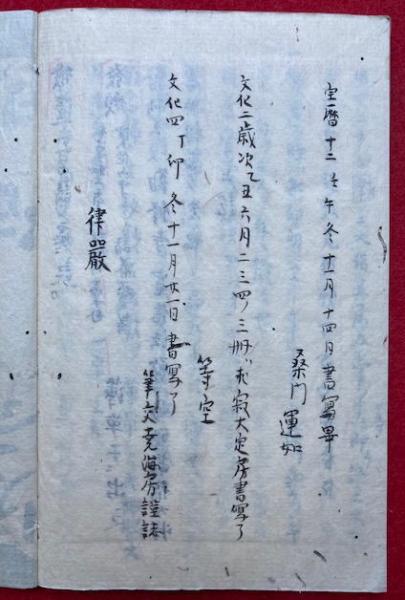 宝暦十二壬午冬十一月十四日書寫畢
桑門運如
文化二歳次乙丑六月二三四ノ三冊於寂大定房書寫了
等空
文化四丁卯冬十一月廿一日書寫了
筆交堯海房謹誌
律嚴